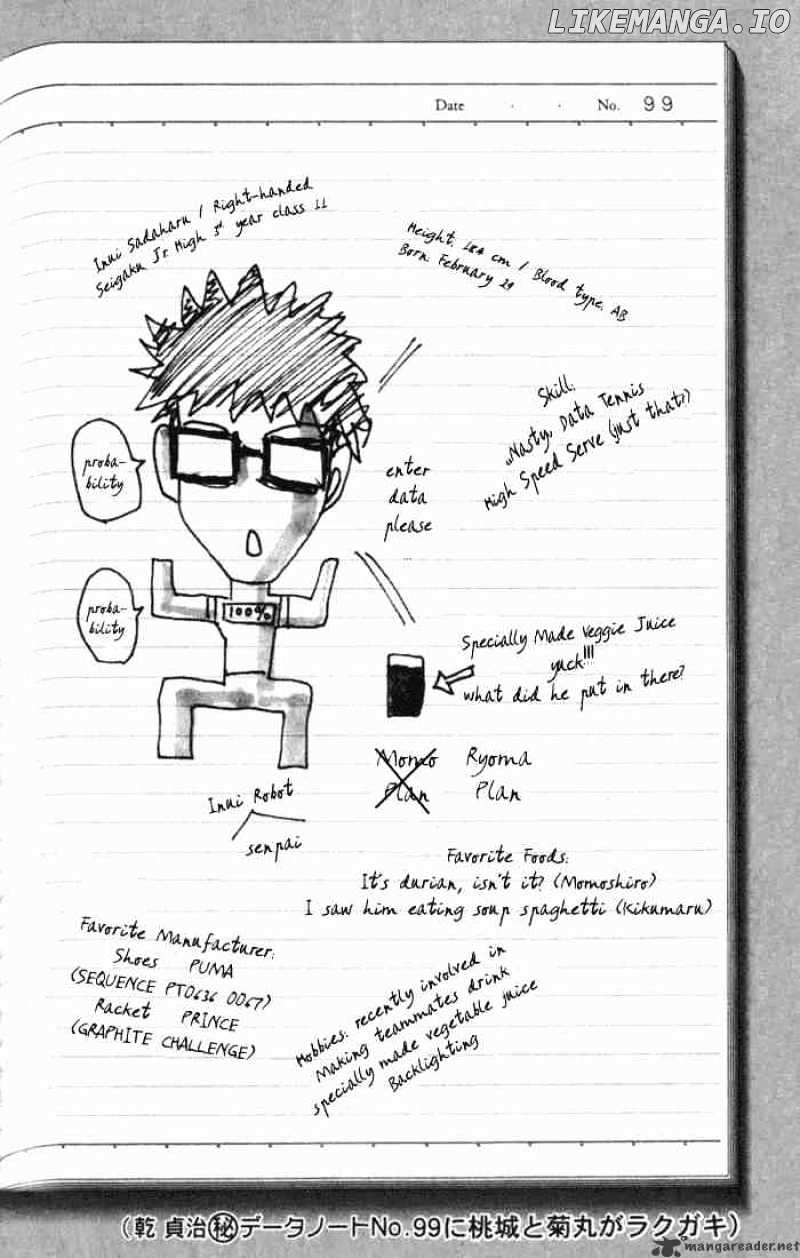 LIKEMANGA.IO
Date . . No. 99
Inui Sadaharu / Right-handed
Seigaku Jr. High 3rd year class 11
Height: 184 cm / Blood type: AB
Born February 29
Skill:
"Nasty" Data Tennis
High Speed Serve (just that?)
proba-
bility
enter
data
please
proba-
bility
100%
Specially Made Veggie Juice
yuck!!!
what did he put in there?
Momo Ryoma
Plan Plan
Inui Robot
senpai
Favorite Foods:
It's durian, isn't it? (Momoshiro)
I saw him eating soup spaghetti (Kikumaru)
Favorite Manufacturer:
Shoes PUMA
(SEQUENCE PT0636 0067)
Racket PRINCE
(GRAPHITE CHALLENGE)
Hobbies: recently involved in
Making teammates drink
specially made vegetable juice
Backlighting
(乾 貞治㊙データノートNo.99に桃城と菊丸がラクガキ)
mangareader.net